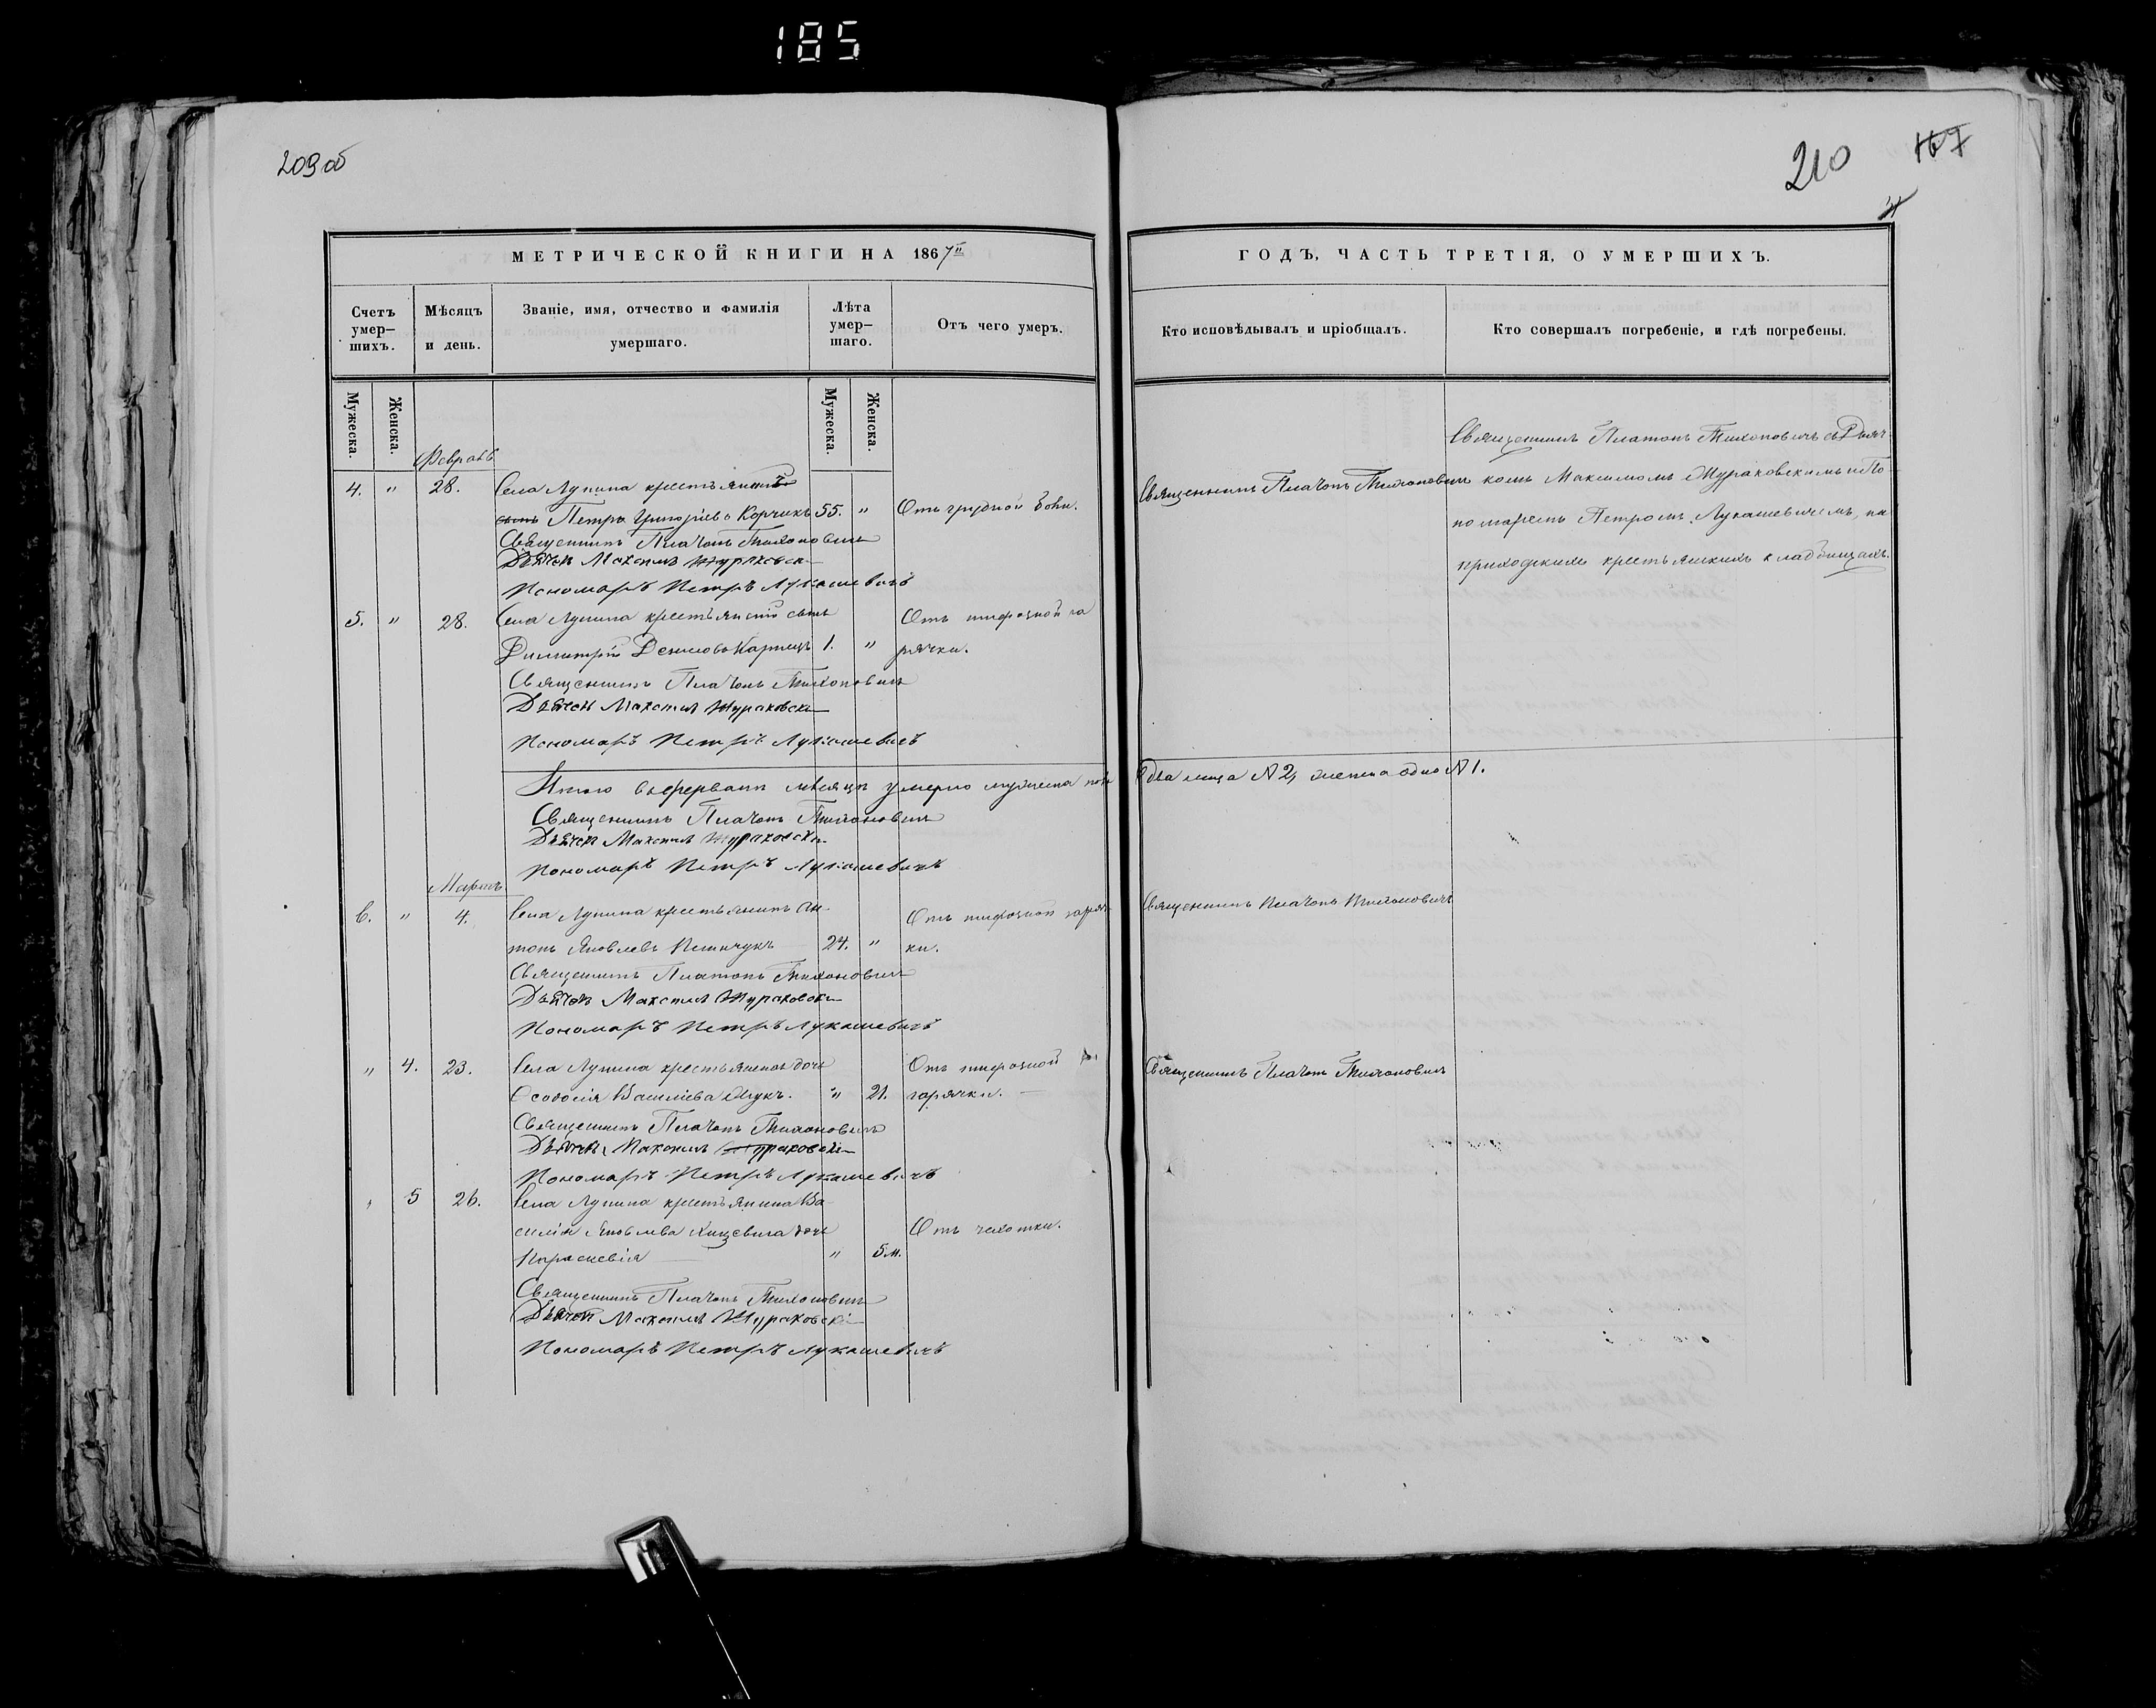 185
209 об
210
167
МЕТРИЧЕСКОЙ КНИГИ НА 1867й
ГОДЪ, ЧАСТЬ ТРЕТІЯ, О УМЕРШИХЪ.
Счетъ умер- шихъ.
Мѣсяцъ и день.
Званіе, имя, отчество и фамилія умершаго.
Лѣта умер- шаго.
Отъ чего умеръ.
Кто исповѣдывалъ и пріобщалъ.
Кто совершалъ погребеніе, и гдѣ погребены.
Мужеска.
Женска.
Мужеска.
Женска.
Февраль
4. " 28. Села Лунина крестьянинъ
Петръ Григоріевъ Корчикъ 55. " Отъ грудной боли.
Священникъ Платонъ Тихоновичъ
Священникъ Платонъ Тихоновичъ съ Дьяч-
комъ Максимомъ Жураковскимъ и По-
номаремъ Петромъ Лукашевичемъ, на
приходскихъ крестьянскихъ кладбищахъ.
Священникъ Платонъ Тихоновичъ
Дьячекъ Максимъ Жураковскій
Пономарь Петръ Лукашевичъ
5. " 28. Села Лунина крестьянскій сынъ Отъ тифозной го
Димитрій Денисовъ 1. " рячки.
Священникъ Платонъ Тихоновичъ
Дьячекъ Максимъ Жураковскій
Пономарь Петръ Лукашевичъ
Итого въ феврале месяце умерло мужеска пола два лица № 2, женска одно № 1.
Священникъ Платонъ Тихоновичъ
Дьячекъ Максимъ Жураковскій
Пономарь Петръ Лукашевичъ
Мартъ
6. " 4. Села Лунина крестьянинъ Ан- Отъ тифозной горяч-
тонъ Яковлевъ 24. " ки.
Священникъ Платонъ Тихоновичъ
Священникъ Платонъ Тихоновичъ
Дьячекъ Максимъ Жураковскій
Пономарь Петръ Лукашевичъ
" 4. 23. Села Лунина крестьянская дочь Отъ тифозной
Феодосія Василіева " 21. горячки.
Священникъ Платонъ Тихоновичъ
Священникъ Платонъ Тихоновичъ
Дьячекъ Максимъ Жураковскій
Пономарь Петръ Лукашевичъ
" 5 26. Села Лунина крестьянина Ва-
силія Яковлева дочь Отъ чахотки.
Параскевія " 5 м.
Священникъ Платонъ Тихоновичъ
Дьячекъ Максимъ Жураковскій
Пономарь Петръ Лукашевичъ